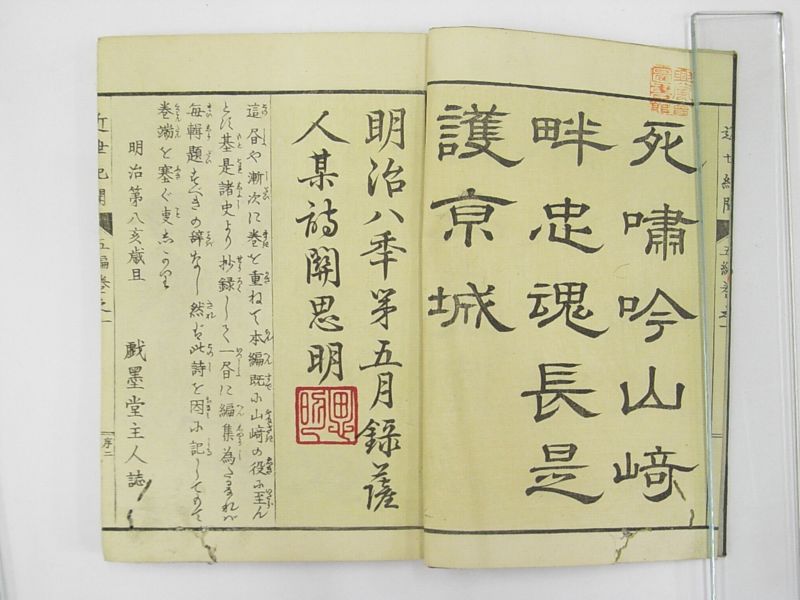 死嘯吟山﨑
畔忠魂長是
護京城
明治八季第五月錄薩
人某詩關思明
這冊や漸次に巻を重ねて本編既に山崎の役に至ん
とす基是諸史より抄録して一冊に編集為たるなれバ
毎輯題すべきの辞なし然ども此詩を因に記してもて
巻端を塞ぐ
明治第八亥歳旦
戯墨堂主人誌
近世紀聞
五編巻之一
序二